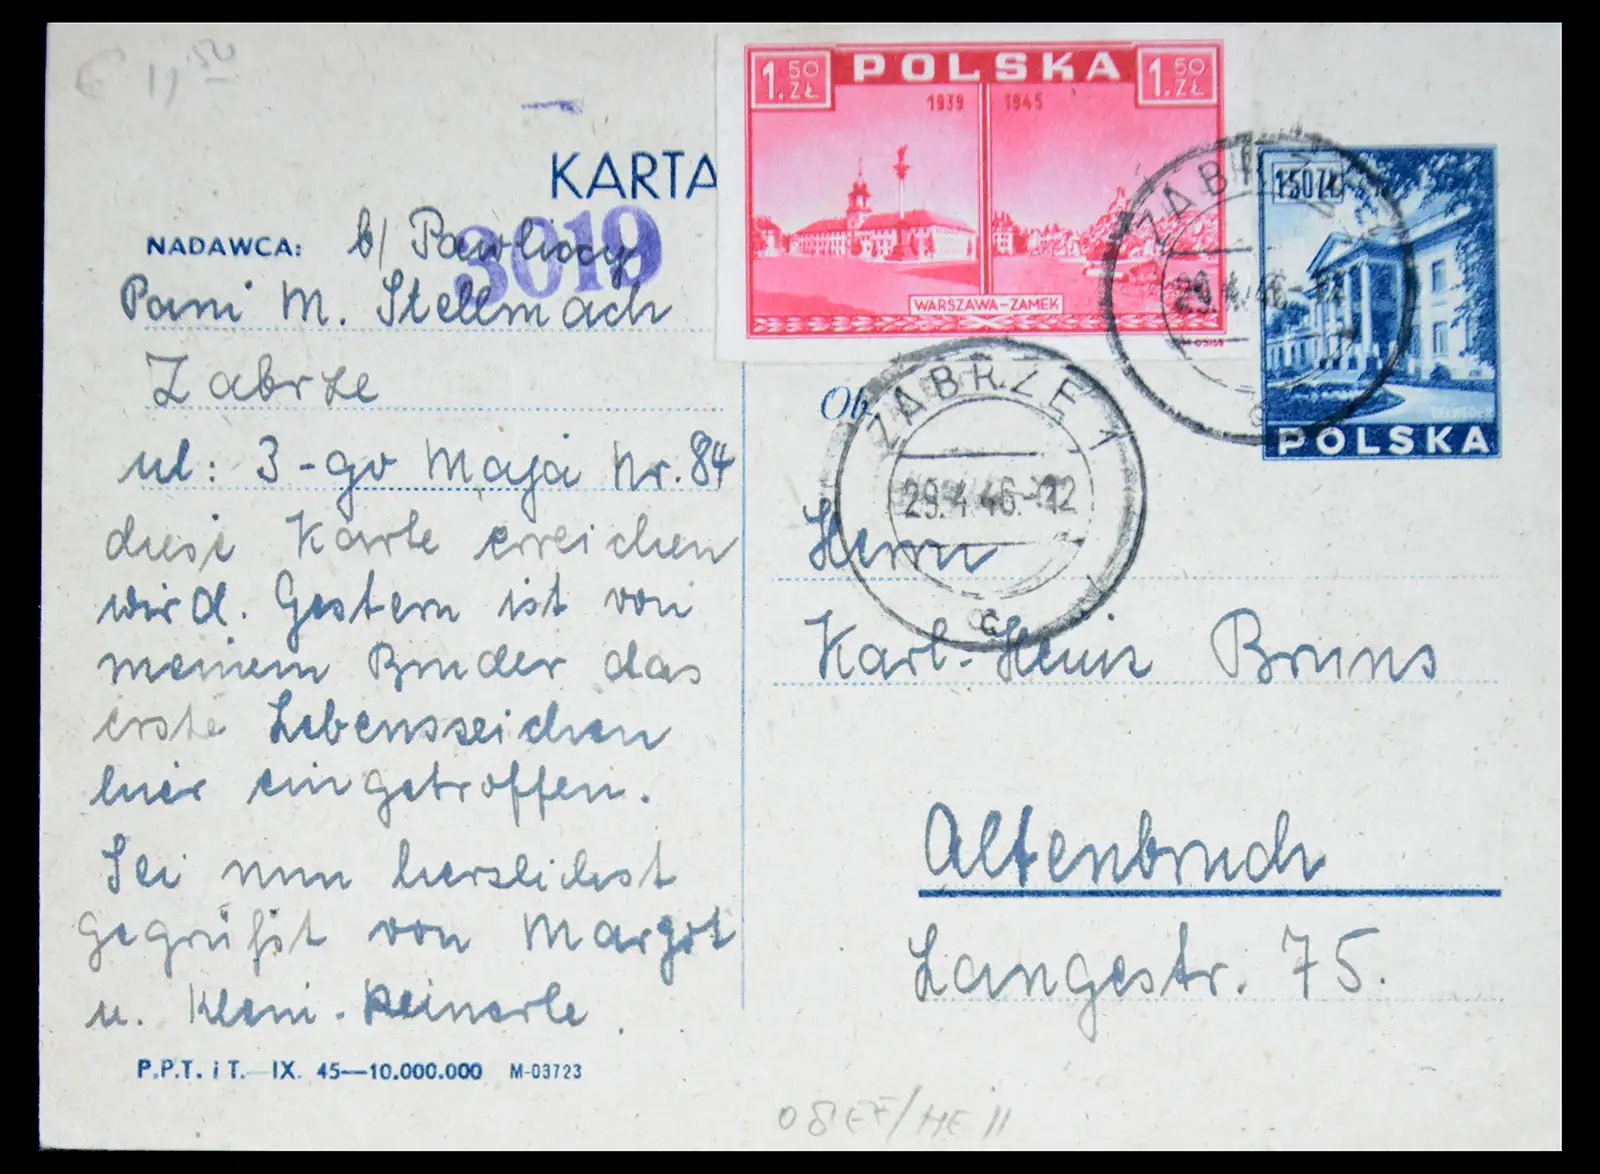 € 11,50
KARTA
3019
NADAWCA: b/ Pawliccy
Pani M. Stellmach
Zabrze
ul: 3-go Maja Nr. 84
diese Karte erreichen
wird. Gestern ist von
meinem Bruder das
erste Lebenszeichen
hier eingetroffen.
Sei nun herzlichst
gegrüßt von Margot
u. Klein-
P.P.T. i T.—IX. 45—10.000.000 M-03723
1.50 ZŁ POLSKA 1.50 ZŁ
1939 1945
WARSZAWA-ZAMEK
ZABRZE 1
29.4.46.-12
c
ZABRZE 1
29.4.46-12
c
1·50 ZŁ
BELWEDER
POLSKA
Ob
Herrn
Karl-Heinz Bruns
Altenbruch
Langestr. 75.